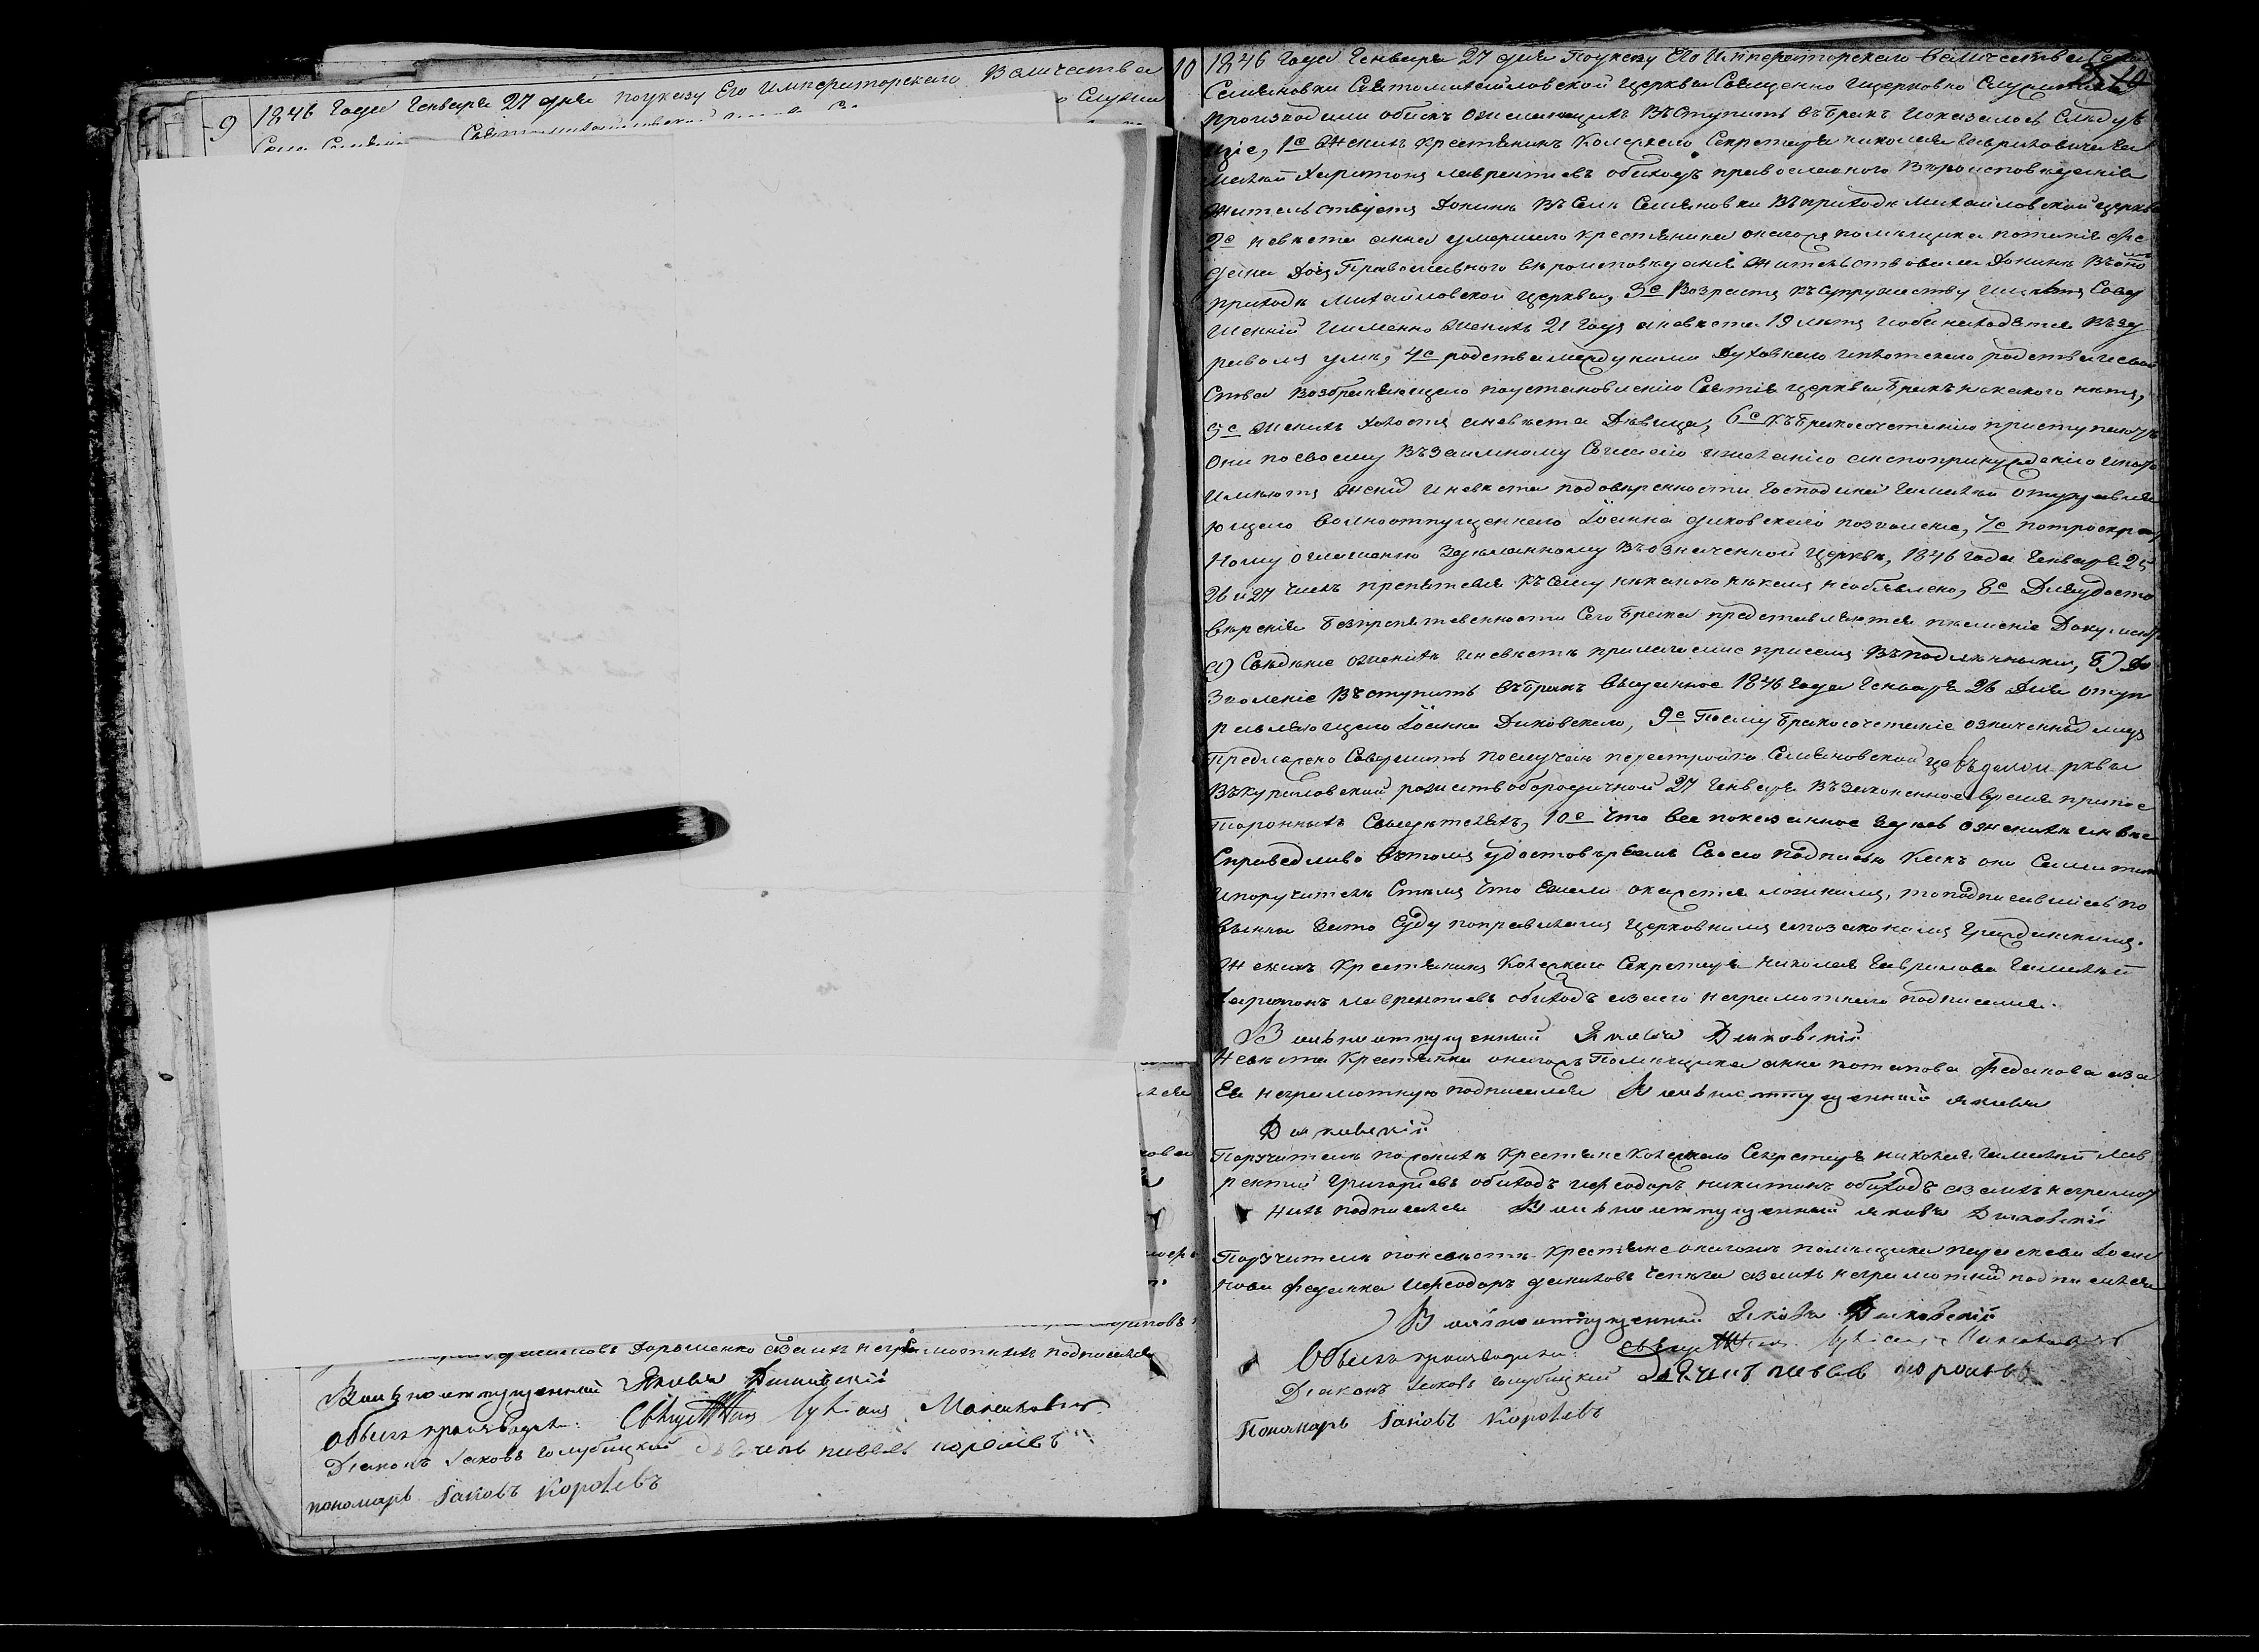 9
1846 года Генваря 27 дня по указу Его Императорскаго Величества
Даниловъ Дорошенко а за ихъ неграмотныхъ подписался
Вольноотпущенный Яковъ Диковскій
Обыскъ производили: Священникъ
Діаконъ Іаковъ Голубицкий Дьячекъ Павелъ Королевъ
пономарь Іаковъ Королевъ
10
1846 года Генваря 27 дня По указу Его Императорскаго Величества Села
Семяновки Святомихайловской церкви Священно и церковно Служители
производили обыскъ о желающихъ Вступить въ бракъ и оказалось Слѣдую
щіе, 1е Женихъ крестянинъ Колежскаго Секретаря Николая Гавриловича Га
малѣи Харитонъ Лаврентіевъ Обиходъ православного Вѣроисповеданія
Жительствуетъ донинѣ Въ Селѣ Семяновки Въ приходѣ Михайловской церкви
2е невѣста Анна умершаго крестянина оногожъ помѣщика Потапія Фе
денка дочь Православного вѣроисповѣданія Жительствовала донинѣ Въ оно
приходѣ Михайловской церкви, 3е Возрастъ къ Супружеству имѣютъ Сове
шенній и именно Женихъ 21 годъ а невѣста 19 лѣтъ и оба находятся Въ зд
равомъ умѣ, 4е родства между ними духовнаго и плотскаго родства и свой
Ства Возбраняющаго по установленію Святія церкви бракъ никакого нѣтъ,
5е Женихъ холостъ а невѣста Дѣвица, 6е Къ бракосочетанію приступаютъ
Они по своему Взаимному Согласію и желанію а не по принужденію и на то
имѣютъ Жених и невѣста по довѣренности Господина Гамалѣи от управля
ющаго Волноотпущеннаго Іоанна Диковскаго позволеніе, 7е По троекрат
Ному оглашенію зделанному Въ означенной церквѣ, 1846 года Генваря 25
26 и 27 числъ препятствія къ Сему никакого никемъ не объявлено, 8е Для удосто
вѣренія безпрепятственности Сего брака представляются писменіе Документы
а) Свѣденіе о женихѣ и невѣстѣ прилагаемие при семъ Въ подлинникѣ, б) До
Зволеніе Вступить въ бракъ Выданное 1846 года Генваря 26 Дня от уп
равляющаго Іоанна Диковскаго, 9е По сему бракосочетаніе означеннихъ лицъ
Предположено Совершить по случаю перестройки Семяновской церкви
Въ Куриловской рождествобогородичной 27 Генваря Въ законенное время при пос
торонныхъ Свидѣтеляхъ, 10е Что все показанное здѣсь о женихѣ и невѣс
Справедливо въ томъ удостовѣряемъ Своею подписью какъ они Сами такъ
и поручители Стѣмъ что Ежели окажется ложнимъ, то подписавшіесь по
винны зато Суду по правиламъ церковнимъ и по законамъ Гражданскимъ.
Женихъ Крестянинъ Колежскаго Секретаря Николая Гаврилова Гамалѣи
Харитонъ Лаврентіевъ Обиходъ а за его неграмотнаго подписался.
Вольноотпущенный Яковъ Диковскій
Невѣста Крестянка оногожъ Помѣщика Анна Потапова Феденкова а за
Ея неграмотную подписался Вольноотпущенный Яковъ
Диковскій
Поручители по женихѣ Крестяне Колежскаго Секретаря Николая Гамалѣи Лав
рентій Григоріевъ Обиходъ и Феодоръ Никитинъ Обиходъ а за ихъ неграмот
нихъ подписался Вольноотпущенный Яковъ Диковскій
Поручители по невѣстѣ Крестяне оногожъ помѣщика
Феденка и Феодоръ а за ихъ неграмотнихъ подписался
Вольноотпущенный Яковъ Диковскій
Обыскъ производили: Священникъ
Діаконъ Іаковъ Голубицкий Дьячекъ Павелъ Королевъ
Пономарь Іаковъ Королевъ